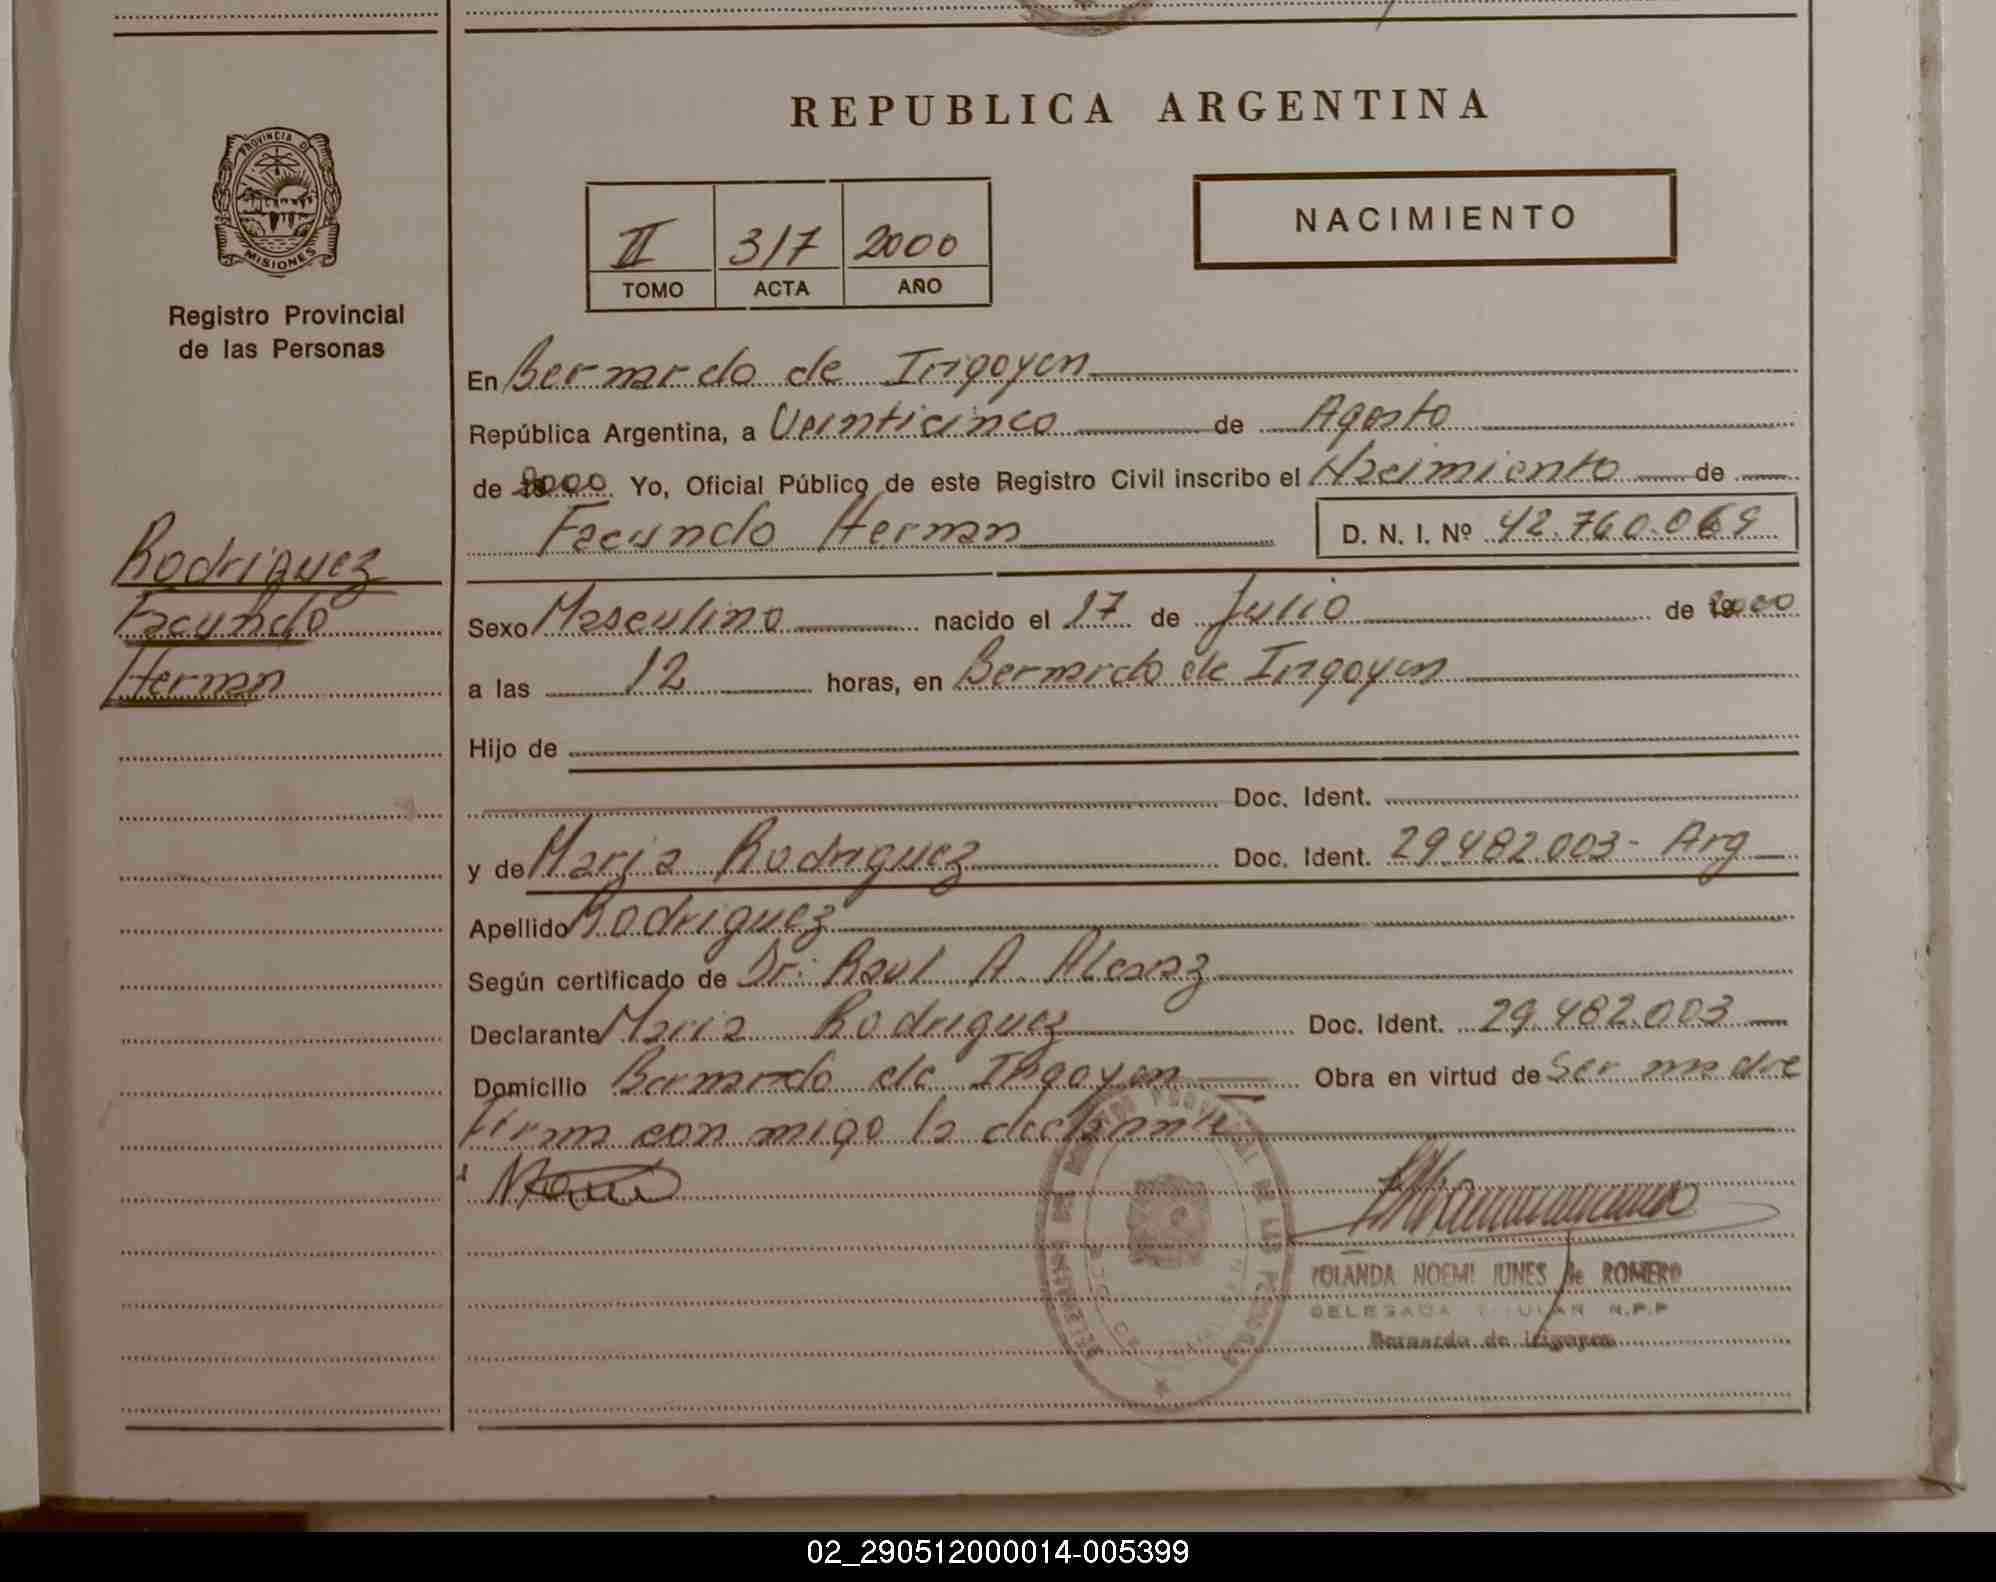 REPUBLICA ARGENTINA
PROVINCIA DE
MISIONES
Registro Provincial
de las Personas
II 317 2000
TOMO ACTA AÑO
NACIMIENTO
En Bernardo de Irigoyen
República Argentina, a Veinticinco de Agosto
de 2000 Yo, Oficial Público de este Registro Civil inscribo el Nacimiento de
Facundo Hernan D. N. I. Nº 42.760.069
Rodriguez
Facundo
Hernan
Sexo Masculino nacido el 17 de Julio de 2000
a las 12 horas, en Bernardo de Irigoyen
Hijo de
Doc. Ident.
y de Maria Rodriguez Doc. Ident. 29.482.003- Arg
Apellido Rodriguez
Según certificado de Dr: Raul A. Alcaraz
Declarante Maria Rodriguez Doc. Ident. 29.482.003
Domicilio Bernardo de Irigoyen Obra en virtud de Ser madre
Firma con migo la declarante
YOLANDA NOEMI IUNES de ROMERO
DELEGADA TITULAR R.P.P
Bernardo de Irigoyen
02_290512000014-005399